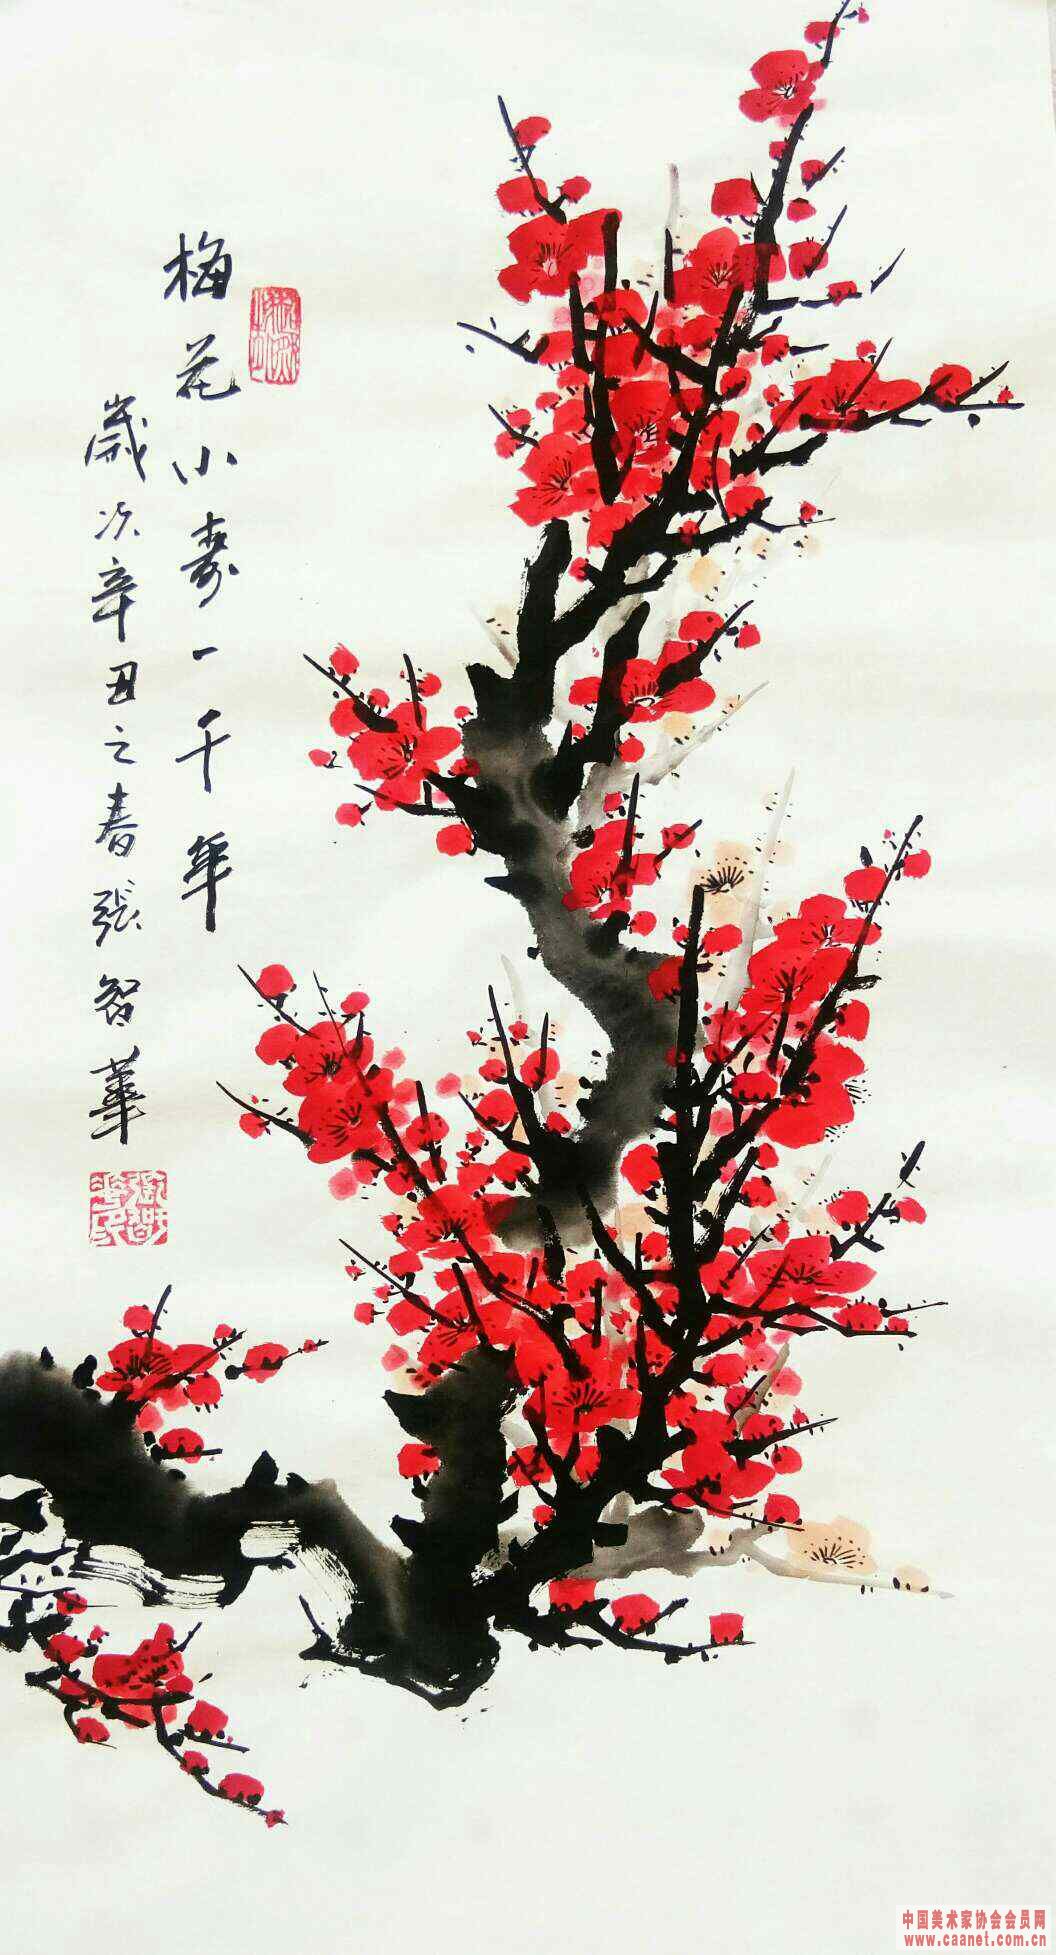 梅花小寿一千年
歲次辛丑之春張智華
張智華印
中国美术家协会会员网
www.caanet.com.cn